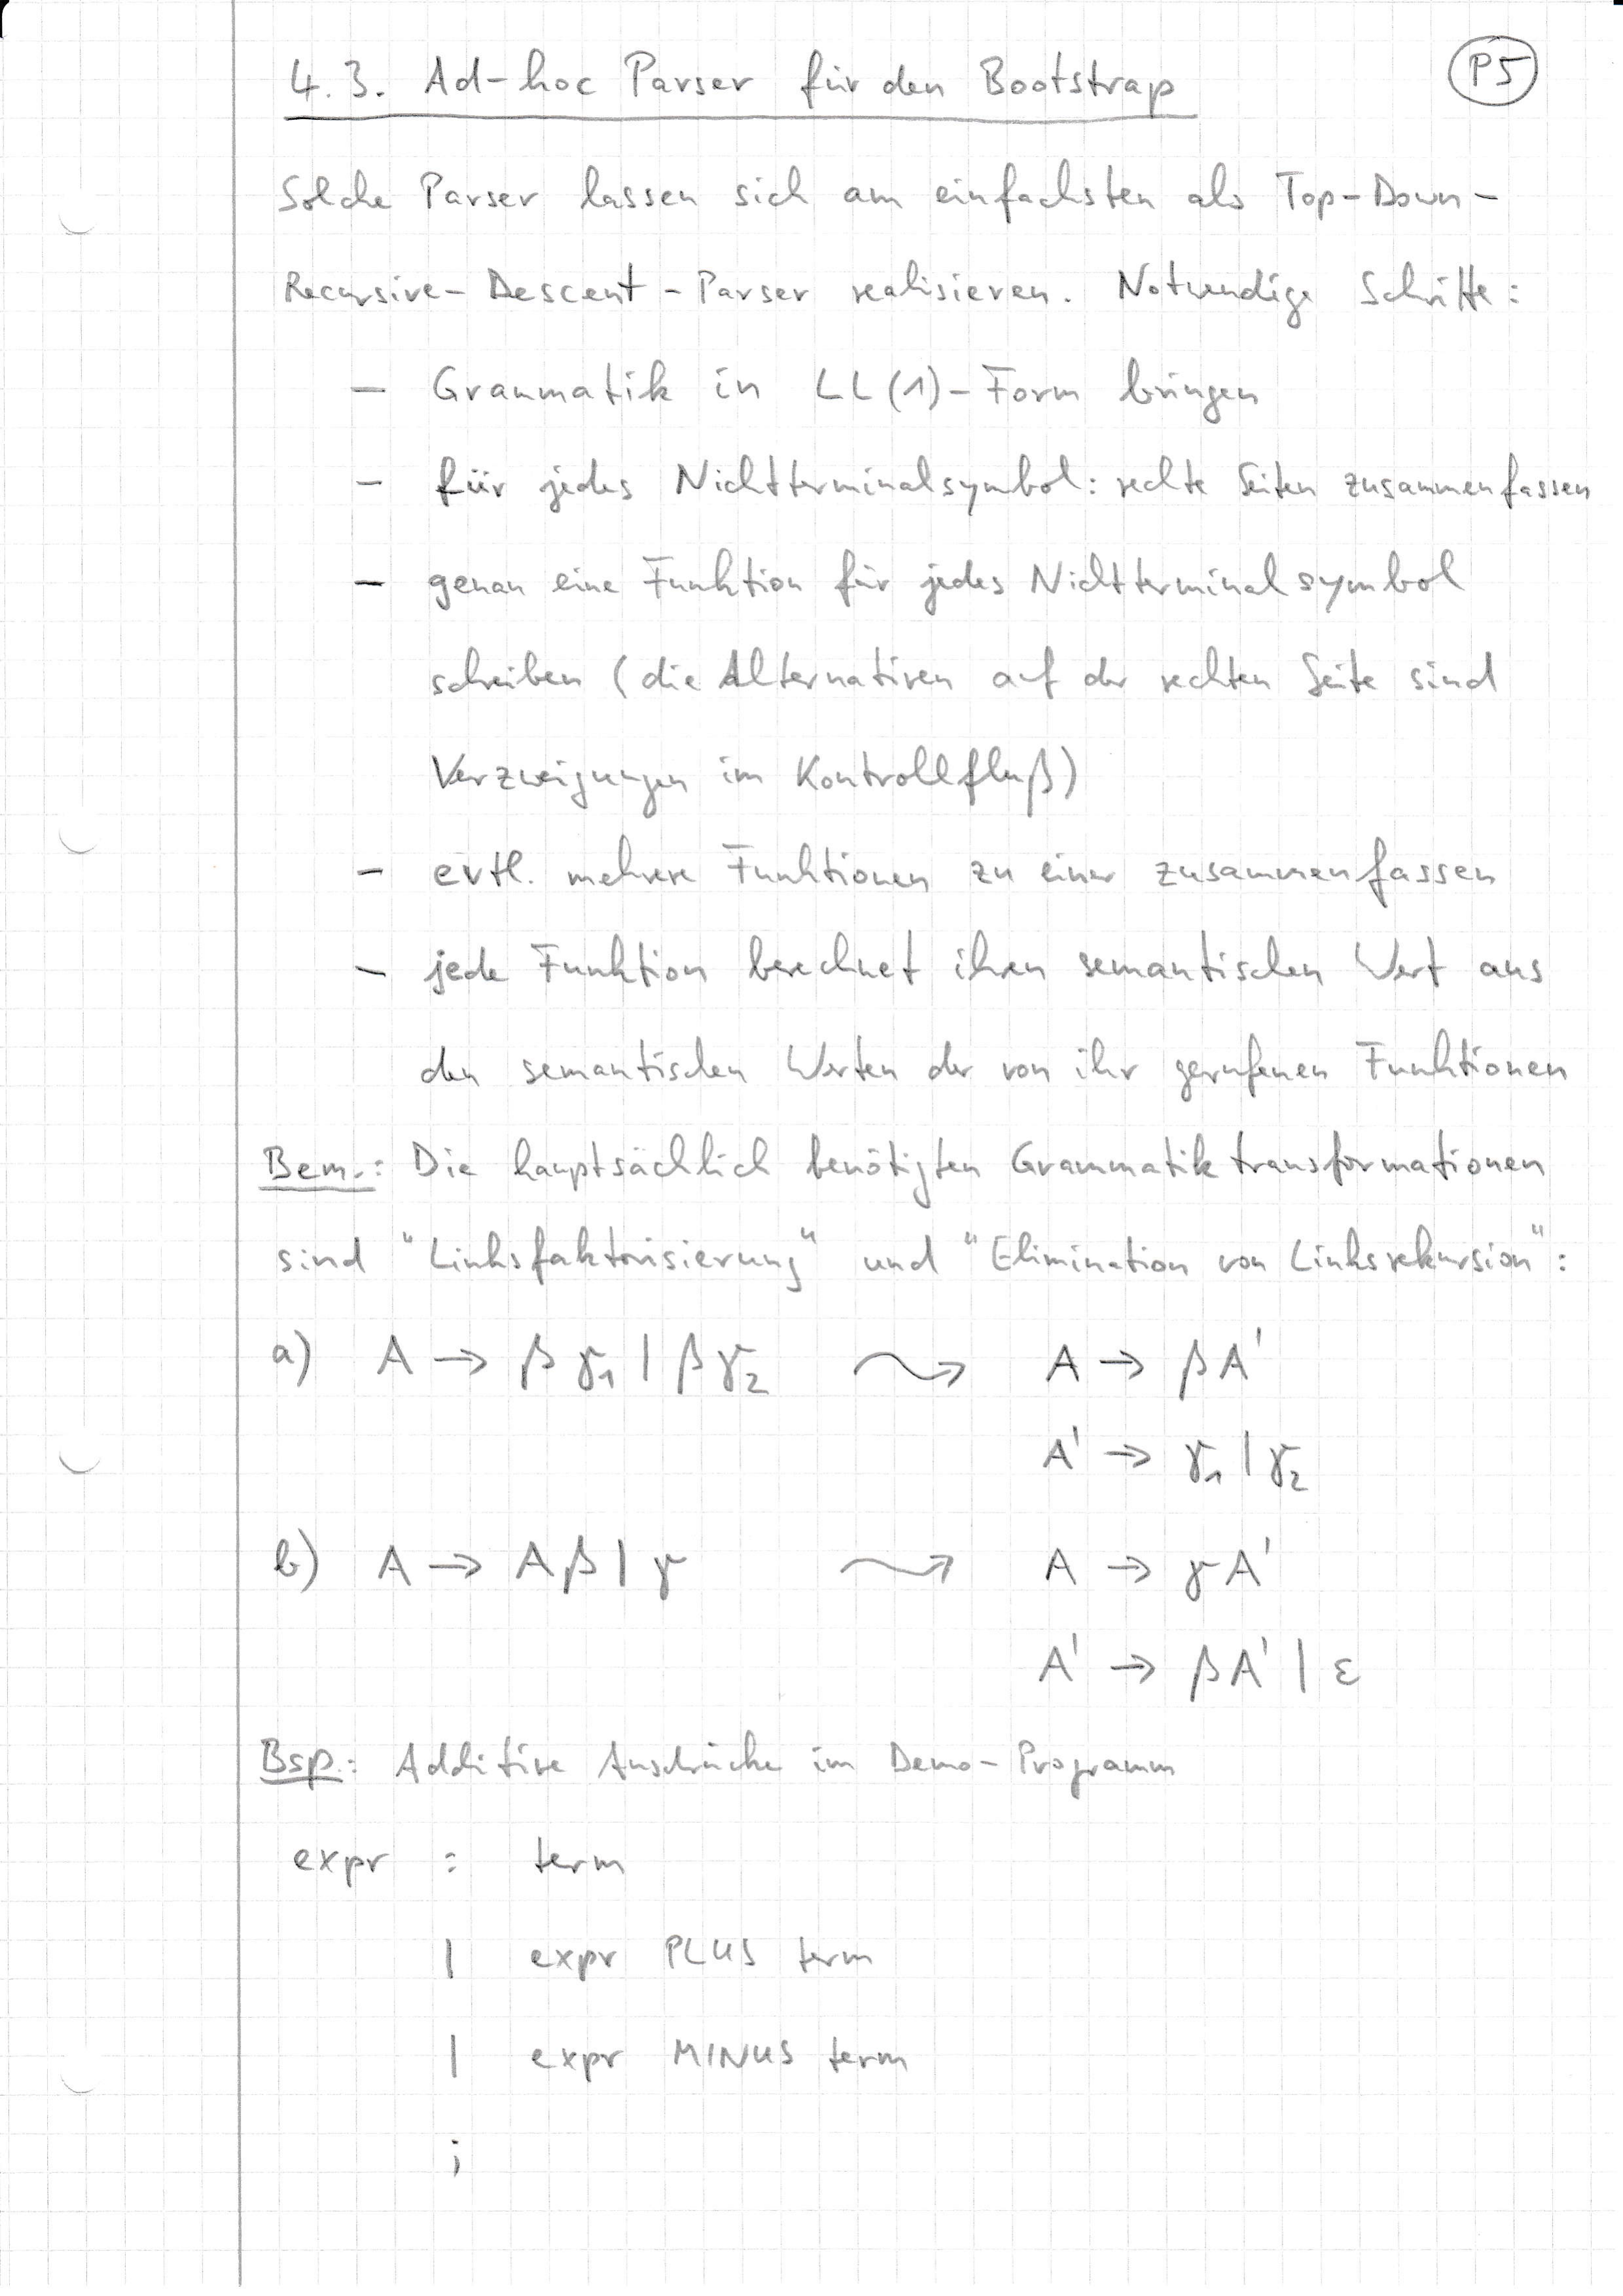 4.3. Ad-hoc Parser für den Bootstrap P5
Solche Parser lassen sich am einfachsten als Top-Down-
Recursive-Descent-Parser realisieren. Notwendige Schritte:
- Grammatik in LL(1)-Form bringen
- für jedes Nichtterminalsymbol: rechte Seiten zusammenfassen
- genau eine Funktion für jedes Nichtterminalsymbol
schreiben (die Alternativen auf der rechten Seite sind
Verzweigungen im Kontrollfluß)
- evtl. mehrere Funktionen zu einer zusammenfassen
- jede Funktion berechnet ihren semantischen Wert aus
den semantischen Werten der von ihr gerufenen Funktionen
Bem.: Die hauptsächlich benötigten Grammatiktransformationen
sind "Linksfaktorisierung" und "Elimination von Linksrekursion":
a) A → β γ₁ | β γ₂ ⤳ A → β A'
A' → γ₁ | γ₂
b) A → A β | γ ⤳ A → γ A'
A' → β A' | ε
Bsp.: Additive Ausdrücke im Demo-Programm
expr : term
| expr PLUS term
| expr MINUS term
;